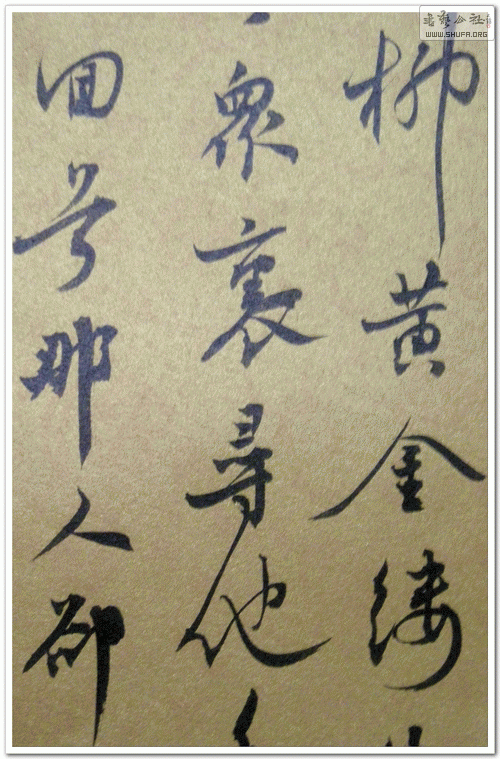 書藝公社
WWW.SHUFA.ORG
柳黄金縷
眾裏尋他
回首那人卻